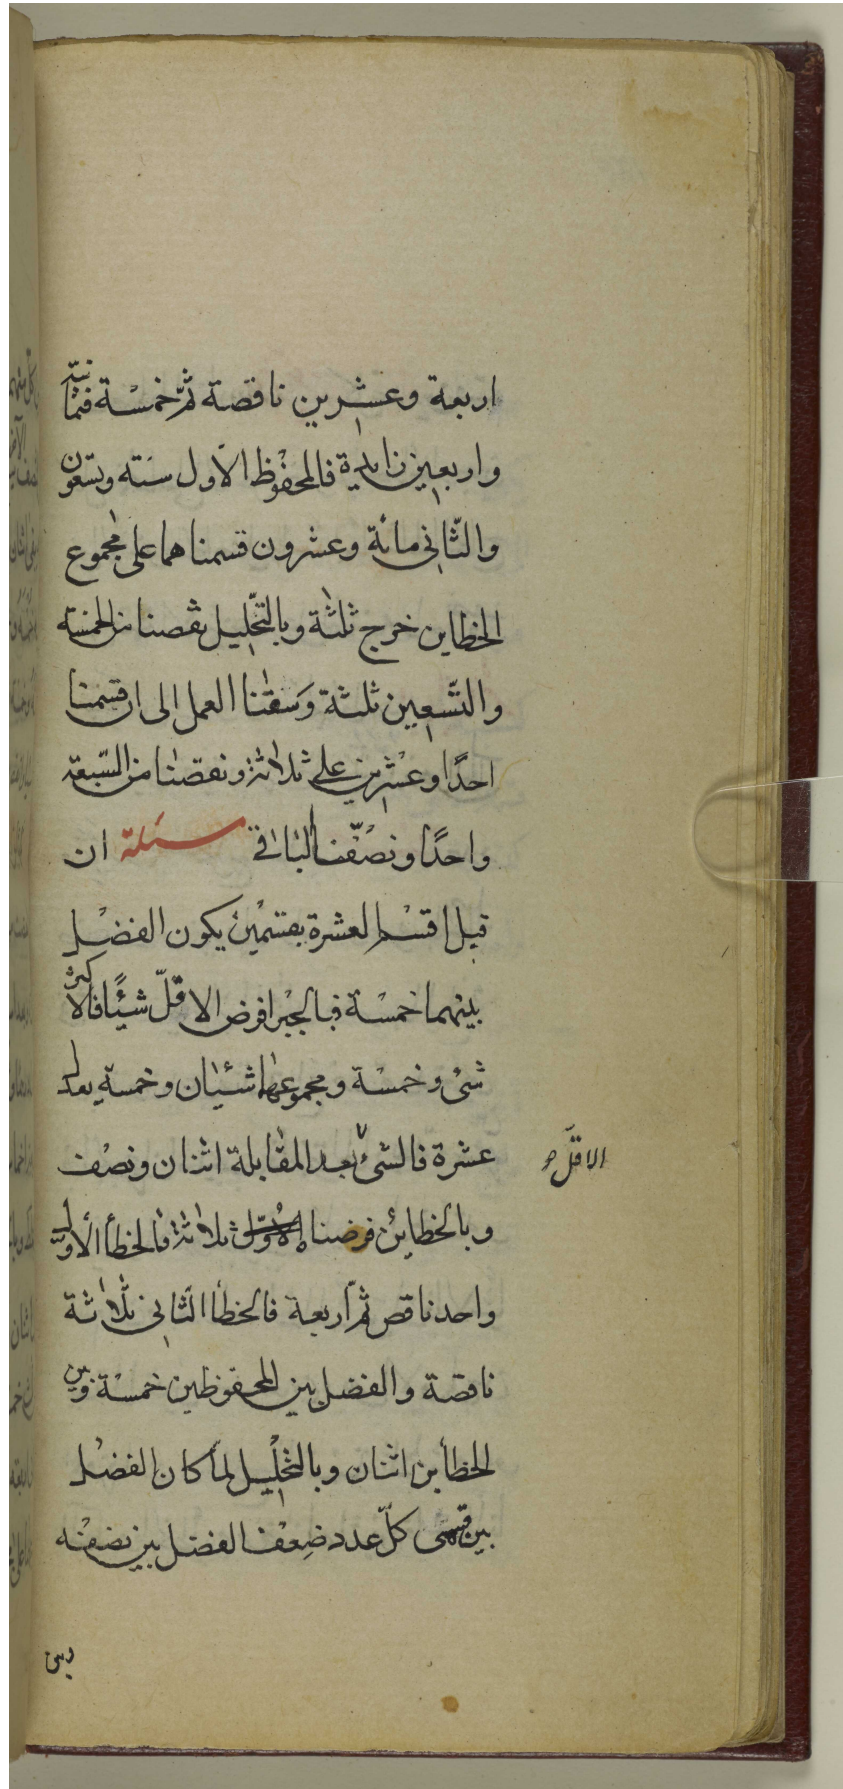 اربعة وعشرين ناقصة ثمّ خمسة فثمانية
واربعين زايدة فالمحفوظ الاّول ستة وتسعون
والثّانى مائة وعشرون قسمناهما على مجموع
الخطاين خرج ثلثة وبالتحّليل نقصنا من الخمسة
والتّسعين ثلثة وسقنا العمل الى ان قسمنا
احدًا وعشرين على ثلاثة ونقصنا من السّبعة
واحدًا ونصّفنا الباقى مسئلة ان
قيل اقسم العشرة بقسمين يكون الفضل
بينهما خمسة فبالجبر افرض الاقلّ شيئًا فالاكبر
شئ وخمسة ومجموعهما شيئان وخمسة يعدل
عشرة فالشئ بعد المقابلة اثنان ونصف
الاقلّ
وبالخطاين فرضنا الاوّل ثلاثة فالخطأ الاول
واحد ناقص ثمّ اربعة فالخطأ الثّانى ثلاثة
ناقصة والفضل بين المحفوظين خمسة وبين
الخطأين اثنان وبالتحليل لمّا كان الفضل
بين قسمى كلّ عدد ضِعف الفضل بين نصفه
وبين